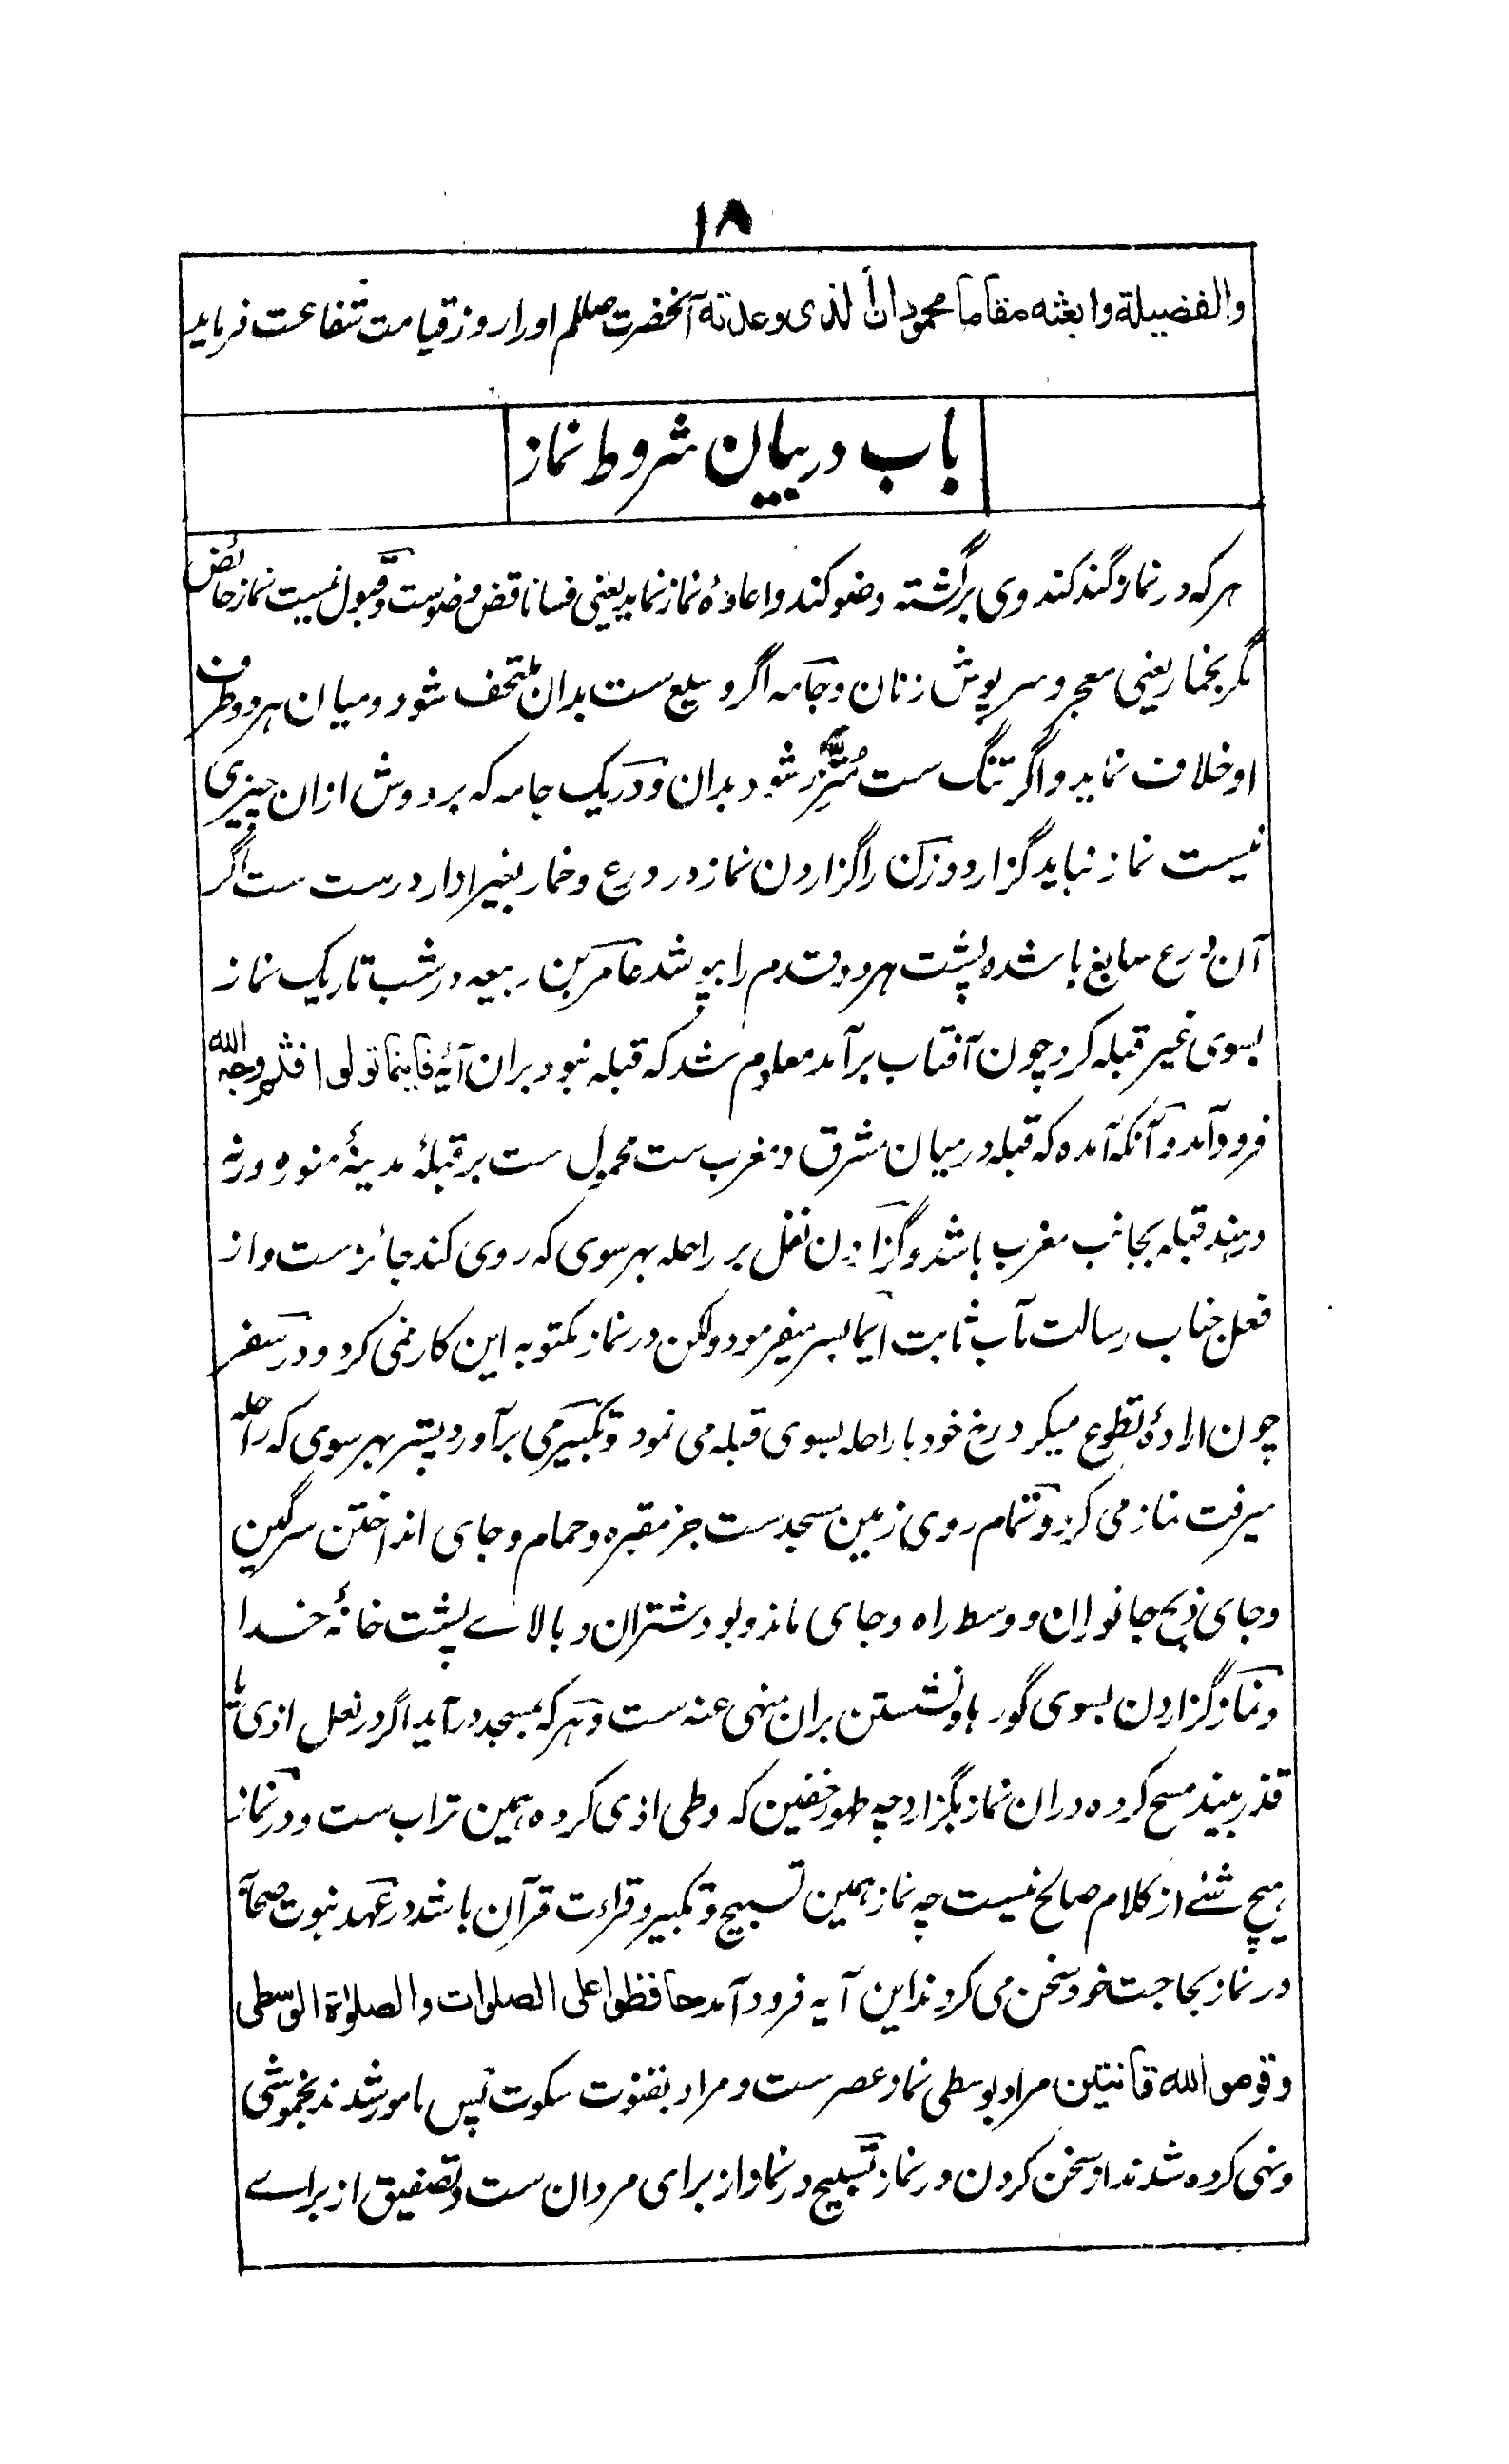 ۱۸
والفضیلة وابعثه مقاما محمودان الذی وعدته آنحضرت صللم اورا روز قیامت شفاعت فرماید
باب در بیان شروط نماز
هرکه در نماز گند کند وی برگشته وضو کند و اعادهٔ نماز نماید یعنی فسا ناقض وضوست و قبول نیست نماز حائض
مگر بخمار یعنی معجر و سرپوش زنان و جامه اگر وسیع ست بدان ملتحف شود و میان هر دو طرف
او خلاف نماید و اگر تنگ ست متزر شود بدان و در یک جامه که بر دوش ازان چیزی
نیست نماز نباید گزارد و زن را گزاردن نماز در درع و خمار بغیر ازار درست ست اگر
آن درع سابغ باشد و پشت هر دو قدم را بپوشد عامر بن ربیعه در شب تاریک نماز
بسوی غیر قبله کرد چون آفتاب برآمد معلوم شد که قبله نبود بران آیهٔ فاینما تولوا فثم وجه الله
فرود آمد و آنکه آمده که قبله در میان مشرق و مغرب ست محمول ست بر قبلهٔ مدینهٔ منوره ورنه
در هند قبله بجانب مغرب باشد و گزاردن نفل بر راحله بهر سوی که روی کند جائز ست و از
فعل جناب رسالت مآب ثابت ایما بسر میفرمود ولکن در نماز مکتوبه این کار نمی کرد و در سفر
چون ارادهٔ تطوع میکرد رخ خود با راحله بسوی قبله می نمود و تکبیر می برآورد پستر بهر سوی که راحله
میرفت نماز می کرد و تمام روی زمین مسجد ست جز مقبره و حمام و جای انداختن سرگین
و جای ذبح جانواران و وسط راه و جای ماند و بود شتران و بالاے پشت خانهٔ خدا
و نماز گزاردن بسوی گورها و نشستن بران منهی عنه ست و هرکه بمسجد درآید اگر در نعل اذی یا
قذر بیند مسح کرده دران نماز بگزارد چه طهور خفین که وطی اذی کرده همین تراب ست و در نماز
هیچ شئے از کلام صالح نیست چه نماز همین تسبیح و تکبیر و قراءت قرآن باشد در عهد نبوت صحابه
در نماز بحاجت خود سخن می کردند این آیه فرود آمد حافظوا علی الصلوات والصلوٰة الوسطی
وقوموا لله قانتین مراد بوسطی نماز عصر ست و مراد بقنوت سکوت پس مامور شدند بخموشی
و نهی کرده شدند از سخن کردن در نماز تسبیح در نماز از برای مردان ست و تصفیق از براے